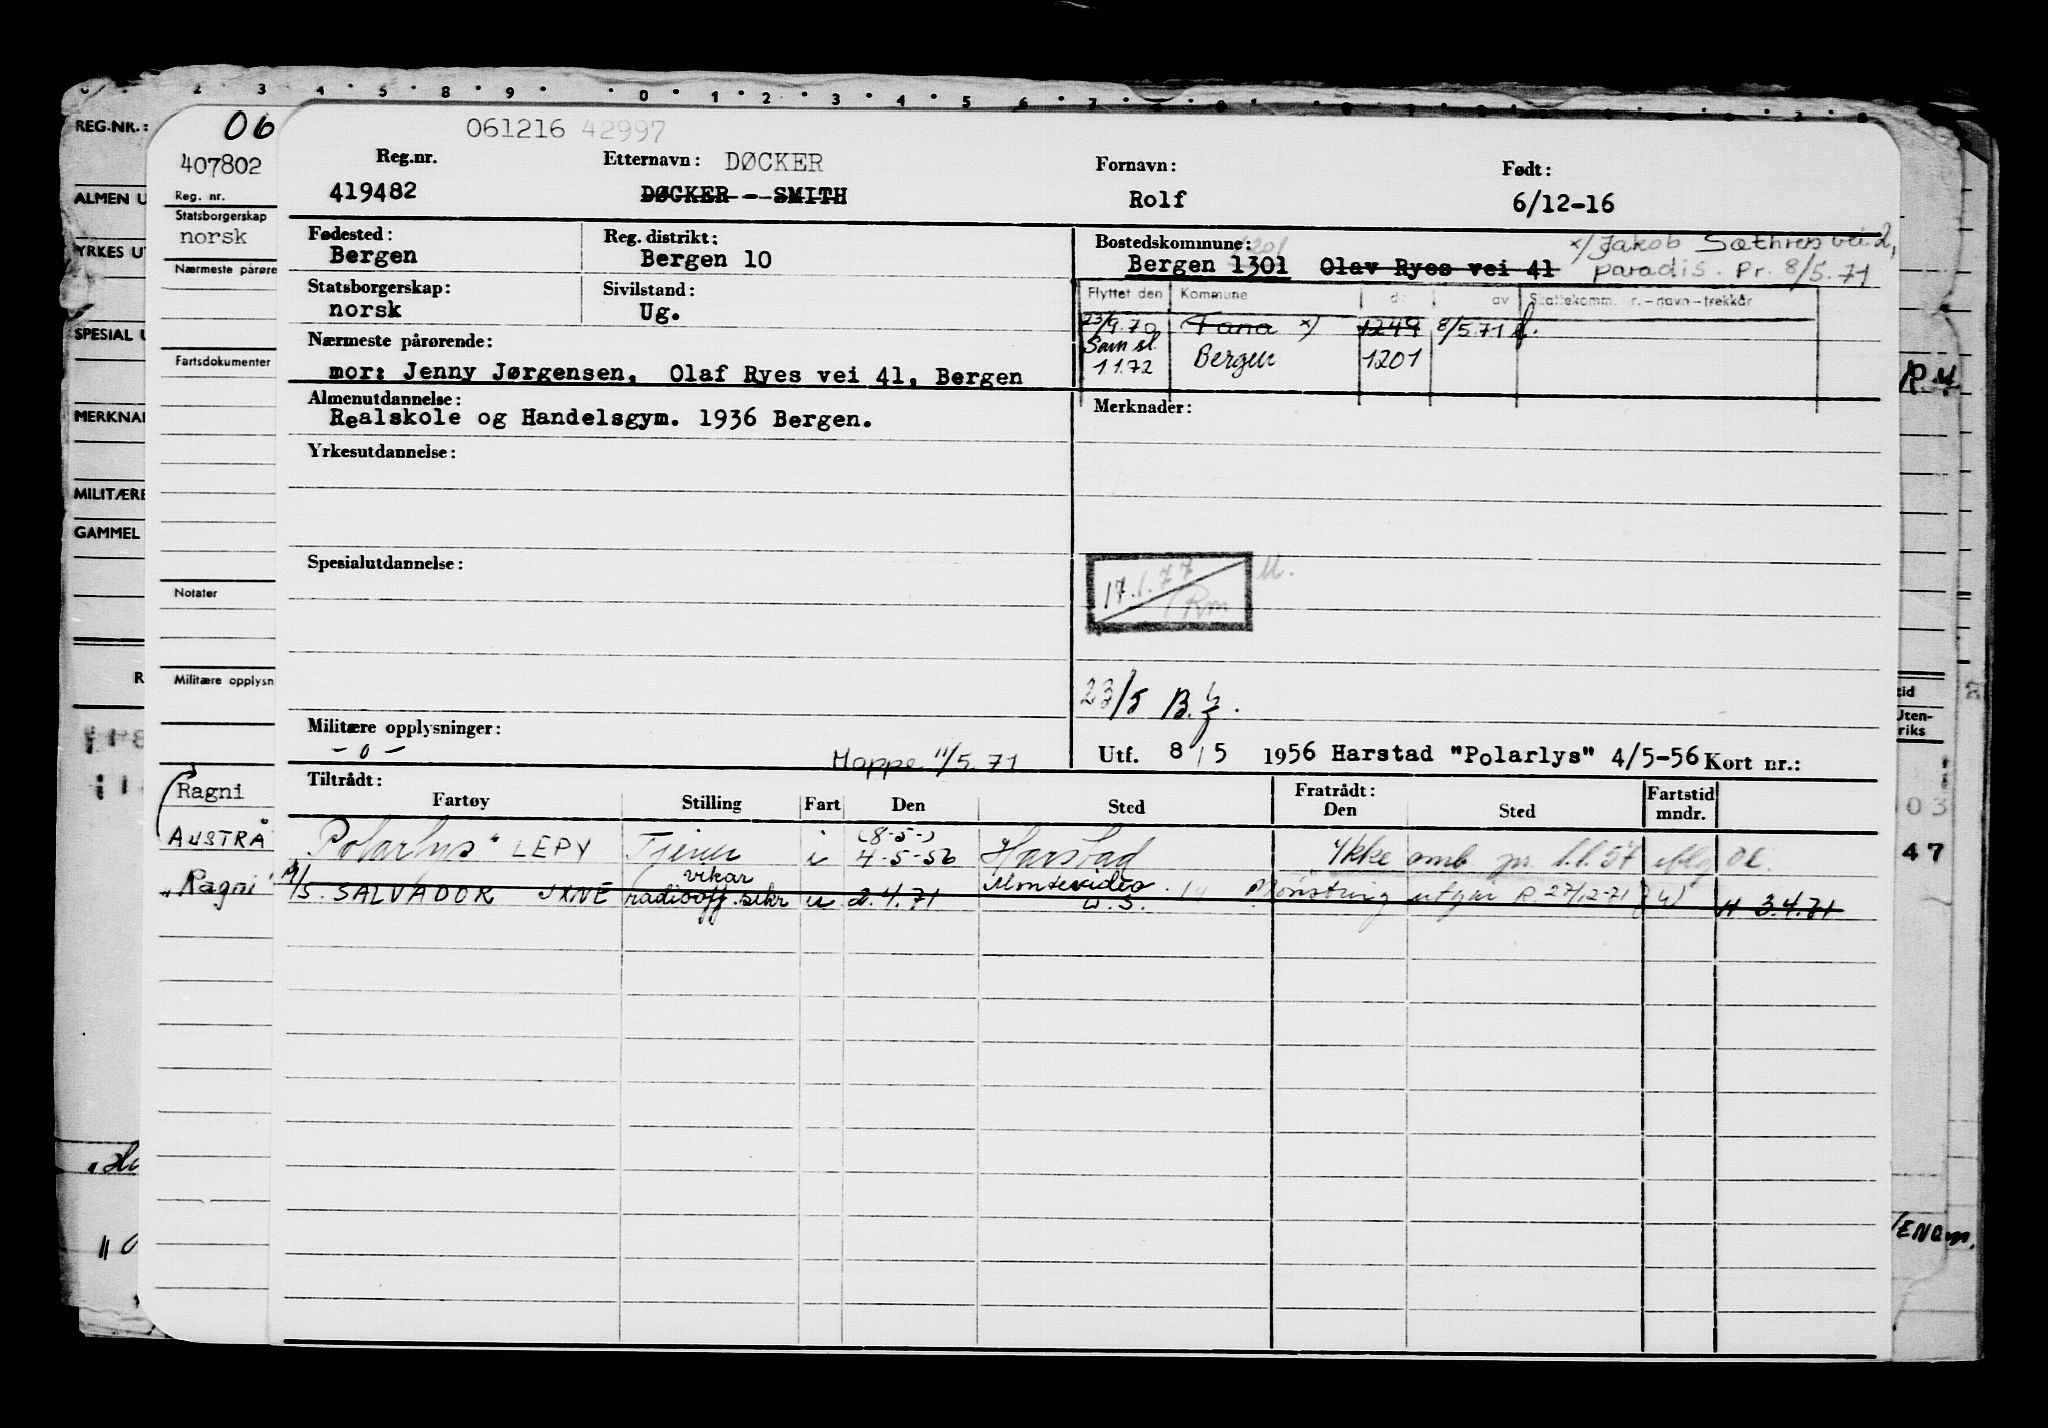 REG.NR.:
ALMEN U
YRKES UT
SPESIAL U
MERKNAD
MILITÆRE
GAMMEL
06
407802
Reg. nr.
Statsborgerskap
norsk
Nærmeste pårøre
Fartsdokumenter
Notater
Militære opplysn
Ragni
AUSTRÅ
"Ragni"
061216 42997
Reg.nr.
419482
Etternavn: DØCKER
DØCKER - SMITH
Fornavn:
Rolf
Født:
6/12-16
Fødested:
Bergen
Reg. distrikt:
Bergen 10
Bostedskommune: 1201
Bergen 1301 Olav Ryes vei 41
x/ Jakob Sæthres vei 2,
paradis. Pr. 8/5.71
Statsborgerskap:
norsk
Sivilstand:
Ug.
Flyttet den Kommune av Skattekomm. nr.-navn-trekkår
23/9.70 Fana x) 1249 8/5.71
Sam sl.
1 1.72 Bergen 1201
Nærmeste pårørende:
mor: Jenny Jørgensen, Olaf Ryes vei 41, Bergen
Almenutdannelse:
Realskole og Handelsgym. 1936 Bergen.
Merknader:
Yrkesutdannelse:
Spesialutdannelse:
17.1.77
Rm
23/5
Militære opplysninger:
- 0 -
Mappe 11/5.71
Utf. 8/5 1956 Harstad "Polarlys" 4/5-56 Kort nr.:
Tiltrådt:
Fartøy Stilling Fart Den Sted
Fratrådt:
Den Sted
Fartstid
mndr.
(8-5-)
Polarlys" LEPY Tjener i 4-5-56 Harstad Ikke omb pr. 1.1.57
vikar
M/S. SALVADOR JXNE radiooff. sikr u 2.4.71 Montevideo Mønstring utgår R. 27/12-71 3.4.71
R.U.
Uten-
riks
03
47